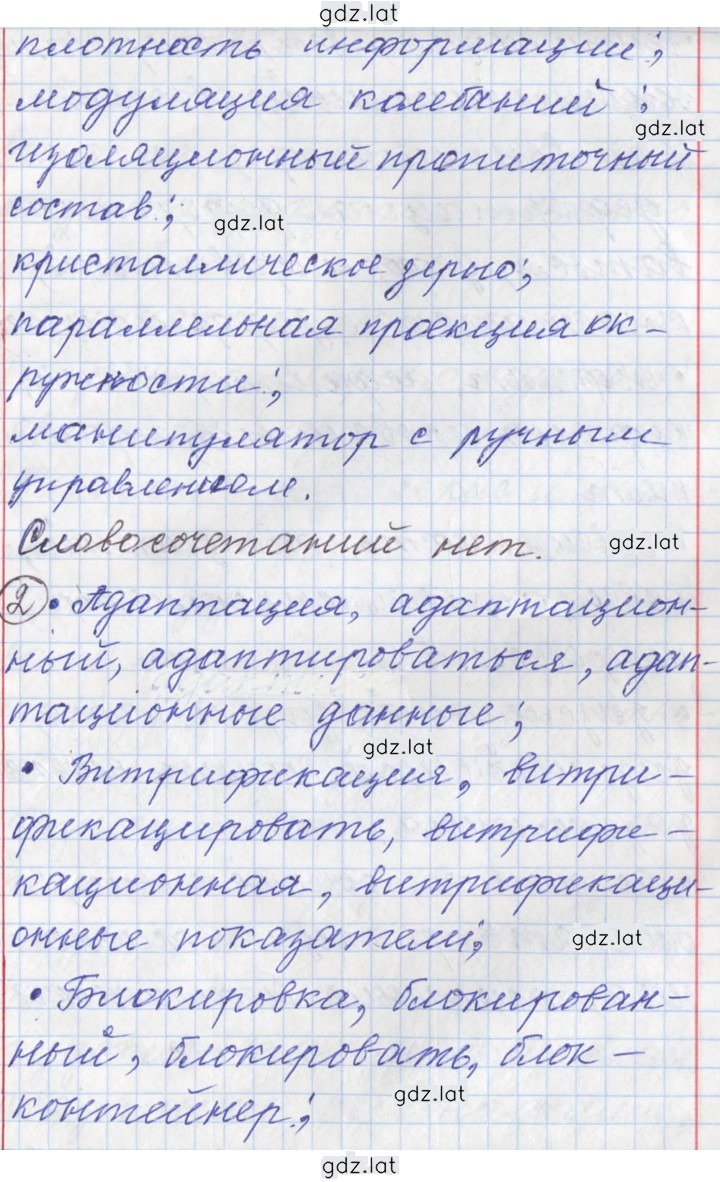 gdz.lat
плотность информации;
модуляция колебаний;
gdz.lat
изоляционный пропиточный
состав;
gdz.lat
кристаллическое зерно;
параллельная проекция ок-
ружности;
манипулятор с ручным
управлением.
Словосочетаний нет.
gdz.lat
2 • Адаптация, адаптацион-
ный, адаптироваться, адап-
тационные данные;
gdz.lat
• Витрификация, витри-
фикацировать, витрифи-
кационная, витрификаци-
онные показатели;
gdz.lat
• Блокировка, блокирован-
ный, блокировать, блок-
контейнер;
gdz.lat
gdz.lat